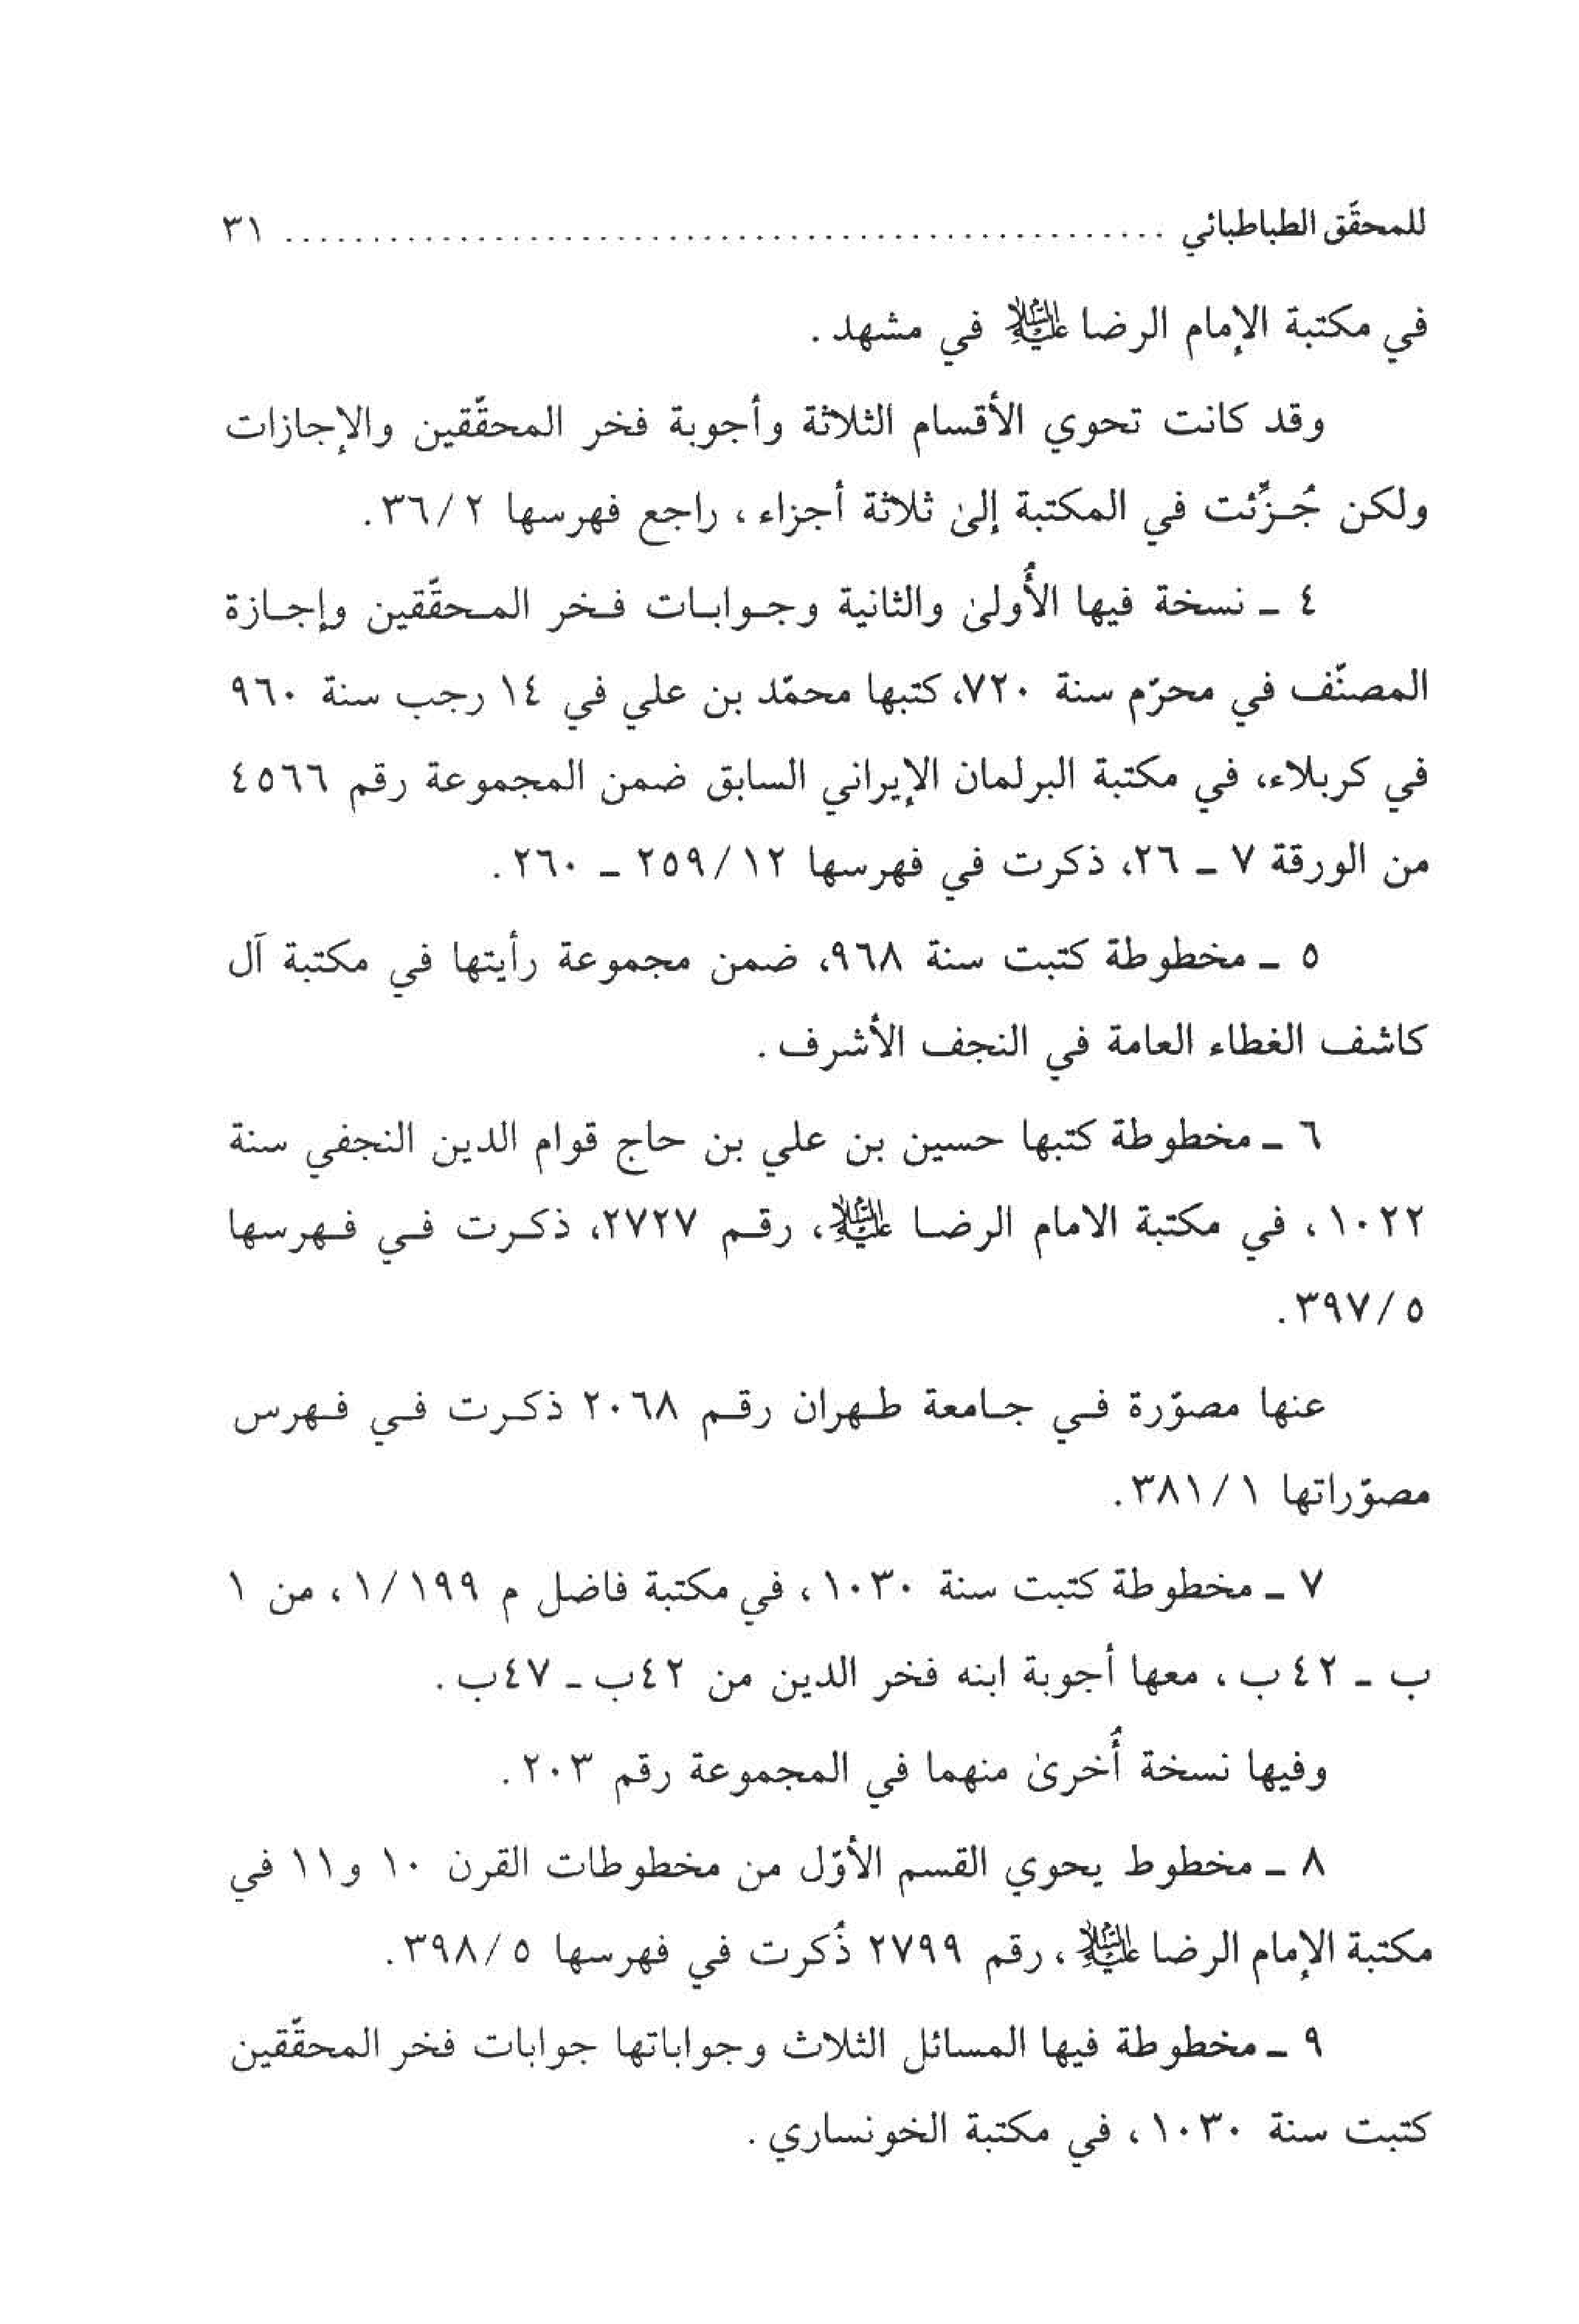 للمحقّق الطباطبائي ........................................................ ٣١
في مكتبة الإمام الرضا عليه السلام في مشهد .
وقد كانت تحوي الأقسام الثلاثة وأجوبة فخر المحقّقين والإجازات
ولكن جُـزّئت في المكتبة إلىٰ ثلاثة أجزاء ، راجع فهرسها ٢ /٣٦.
٤ ـ نسخة فيها الأُولىٰ والثانية وجـوابـات فـخر المـحقّقين وإجـازة
المصنّف في محرّم سنة ٧٢٠، كتبها محمّد بن علي في ١٤ رجب سنة ٩٦٠
في كربلاء، في مكتبة البرلمان الإيراني السابق ضمن المجموعة رقم ٤٥٦٦
من الورقة ٧ ـ ٢٦، ذكرت في فهرسها ١٢ /٢٥٩ ـ ٢٦٠ .
٥ ـ مخطوطة كتبت سنة ٩٦٨، ضمن مجموعة رأيتها في مكتبة آل
كاشف الغطاء العامة في النجف الأشرف .
٦ ـ مخطوطة كتبها حسين بن علي بن حاج قوام الدين النجفي سنة
١٠٢٢ ، في مكتبة الامام الرضـا عليه السلام ، رقـم ٢٧٢٧، ذكـرت فـي فـهرسها
٥ /٣٩٧.
عنها مصوّرة فـي جـامعة طـهران رقـم ٢٠٦٨ ذكـرت فـي فـهرس
مصوّراتها ١ /٣٨١.
٧ ـ مخطوطة كتبت سنة ١٠٣٠ ، في مكتبة فاضل م ١٩٩ /١ ، من ١
ب ـ ٤٢ب ، معها أجوبة ابنه فخر الدين من ٤٢ب ـ ٤٧ب .
وفيها نسخة أُخرىٰ منهما في المجموعة رقم ٢٠٣ .
٨ ـ مخطوط يحوي القسم الأوّل من مخطوطات القرن ١٠ و١١ في
مكتبة الإمام الرضا عليه السلام ، رقم ٢٧٩٩ ذُكرت في فهرسها ٥ /٣٩٨.
٩ ـ مخطوطة فيها المسائل الثلاث وجواباتها جوابات فخر المحقّقين
كتبت سنة ١٠٣٠ ، في مكتبة الخونساري .